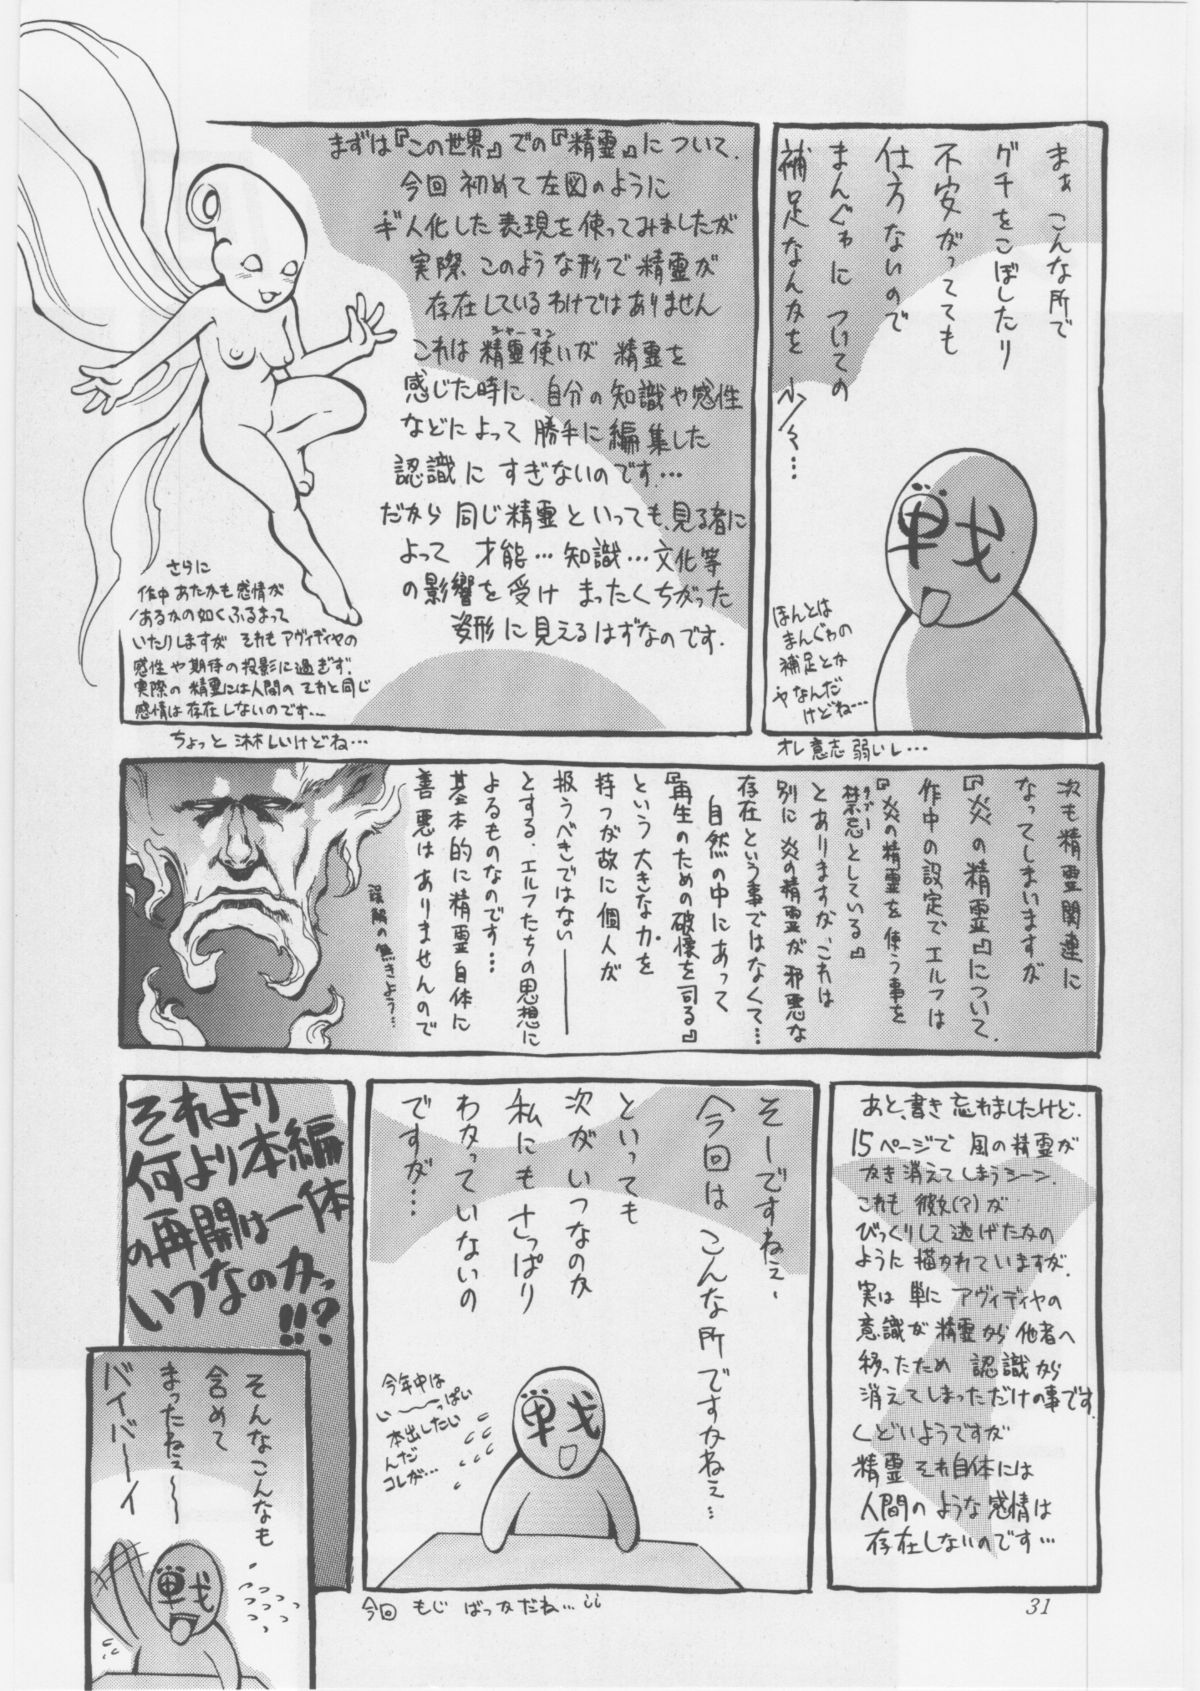 まぁ こんな所で
グチをこぼしたり
不安がってても
仕方ないので
まんぐゎに ついての
補足なんかを 少々…
ほんとは
まんぐゎの
補足とか
やなんだ
けどね…
オレ意志弱いし…
まずは『この世界』での『精霊』について.
今回 初めて左図のように
ギ人化した表現を使ってみましたが
実際、このような形で精霊が
存在しているわけではありません
シャーマン
これは 精霊使いが 精霊を
感じた時に、自分の知識や感性
などによって 勝手に編集した
認識に すぎないのです…
だから 同じ精霊といっても、見る者に
よって 才能…知識…文化等
の影響を受け まったくちがった
姿形に見えるはずなのです.
さらに
作中あたかも感情が
あるかの如くふるまって
いたりしますが それも アヴィディヤの
感性や期待の投影に過ぎず、
実際の精霊には人間の それと同じ
感情は存在しないのです…
ちょっと 淋しいけどね…
次も精霊関連に
なってしまいますが
『炎の精霊』について.
作中の設定でエルフは
『炎の精霊を使う事を
タブー
禁忌としている』
とありますが、これは
別に 炎の精霊が邪悪な
存在という事ではなくて…
自然の中にあって
『再生のための破壊を司る』
という大きな力を
持つが故に個人が
扱うべきではない――
とする、エルフたちの思想に
よるものなのです…
基本的に精霊自体に
善悪はありませんので
誤解の無きよう…
あと、書き忘れましたけど.
15ページで 風の精霊が
かき消えてしまうシーン.
これも 彼女(?)が
びっくりして逃げたかの
ように描かれていますが.
実は 単に アヴィディヤの
意識が精霊から他者へ
移ったため 認識から
消えてしまっただけの事です.
くどいようですが
精霊それ自体には
人間のような感情は
存在しないのです…
そーですねぇ、
今回は こんな所ですかねぇ…
といっても
次がいつなのか
私にもさっぱり
わかっていないの
ですが…
今年中は
い～～っぱい
本出したい
んだ
コレが…
今回 もじ ばっかだね…
それより
何より本編
の再開は一体
いつなのかっ
!!?
そんなこんなも
含めて
まったねぇ～～
バイバーイ
戦
戦
戦
31